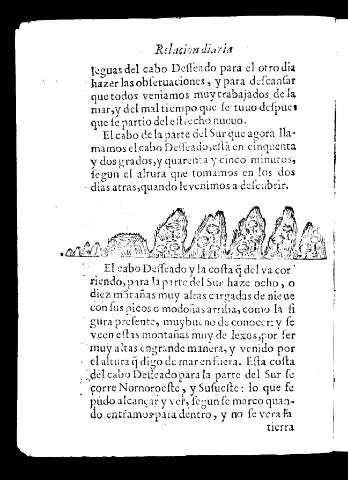 Relacion diaria
leguas del cabo Desseado para el otro dia
hazer las obseruaciones, y para descansar
que todos veniamos muy trabajados de la
mar, y del mal tiempo que se tuuo despues
que se partio del estrecho nueuo.
El cabo de la parte del Sur que agora lla-
mamos el cabo Desseado, està en cinquenta
y dos grados, y quarenta y cinco minutos,
segun el altura que tomamos en los dos
dias atras, quando le venimos a descubrir.
El cabo Desseado y la costa q̃ del va cor
riendo, para la parte del Sur haze ocho, o
diez mõtañas muy altas cargadas de nieue
con sus picos o modoñas arriba, como la fi
gura presente, muy bueno de conocer: y se
veen estas montañas muy de lexos, por ser
muy altas en grande manera, y venido por
el altura q̃ digo de mar en fuera. Esta costa
del cabo Desseado para la parte del Sur se
corre Nornoroeste, y Susueste: lo que se
pudo alcançar y ver, segun se marco quan-
do entramos para dentro, y no se vera la
tierra